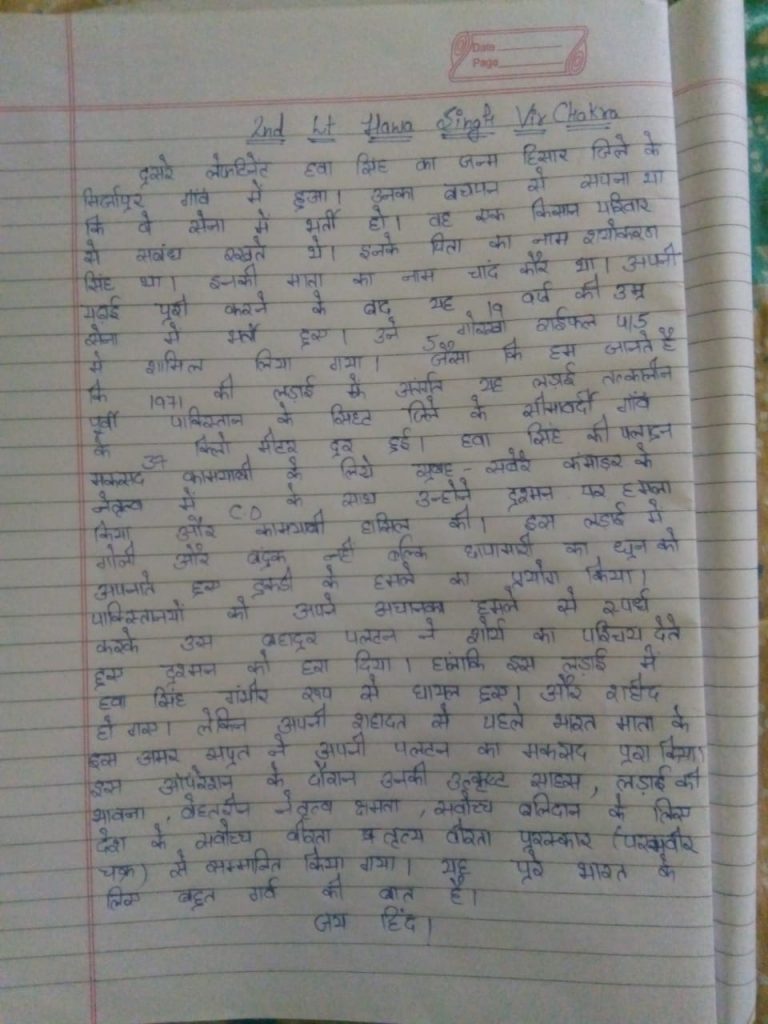 Date
Page
2nd Lt Hawa Singh Vir Chakra
दुसरे लेफ्टिनेंट हवा सिंह का जन्म हिसार जिले के
गाँव में हुआ। उनका बचपन से सपना था
कि वे सेना में भर्ती हो। वह एक किसान परिवार
से सबंध रखते थे। इनके पिता का नाम
सिंह था। इनकी माता का नाम चांद कौर था। अपनी
पढ़ाई पूरी करने के बाद यह 19 वर्ष की उम्र
सेना में भर्ती हुए। उने 5 गोरखा राईफल 4/5
में शामिल लिया गया। जैसा कि हम जानते है
कि 1971 की लड़ाई के अंतर्गत यह लड़ाई तत्कालीन
पूर्वी पाकिस्तान के जिले के गाँव
के 37 किलो मीटर दूर हुई। हवा सिंह की पलाटून
मकसद कामयाबी के लिये सुबह-सवेरे कंमाडर के
नेतृत्व में CO के साथ उन्होंने दुश्मन पर हमला
किया और कामयाबी हासिल की। इस लड़ाई में
गोली और बंदूक नही बल्कि छापामारी का को
अपनाते हुए टुकडी के हमले का प्रयोग किया।
पाकिस्तानयों को अपने अचानका हमले से
करके उस बहादुर पलटन ने शौर्य का परिचय देते
हुए दुश्मन को हरा दिया। हालांकि इस लड़ाई में
हवा सिंह गंभीर रूप से घायल हुए। और शहीद
हो गए। लेकिन अपनी शहादत से पहले भारत माता के
इस अमर सपूत ने अपनी पलटन का मकसद पूरा किया।
इस ऑपरेशन के दौरान उनकी उत्कृष्ट साहस, लड़ाई की
भावना, बेहतरीन नेतृत्व क्षमता, सर्वोच्च बलिदान के लिए
देश के सर्वोच्च वीरता व तृत्य वीरता पुरस्कार (परमवीर
चक्र) से सम्मानित किया गया। यह पूरे भारत के
लिए बहुत गर्व की बात है।
जय हिंद।